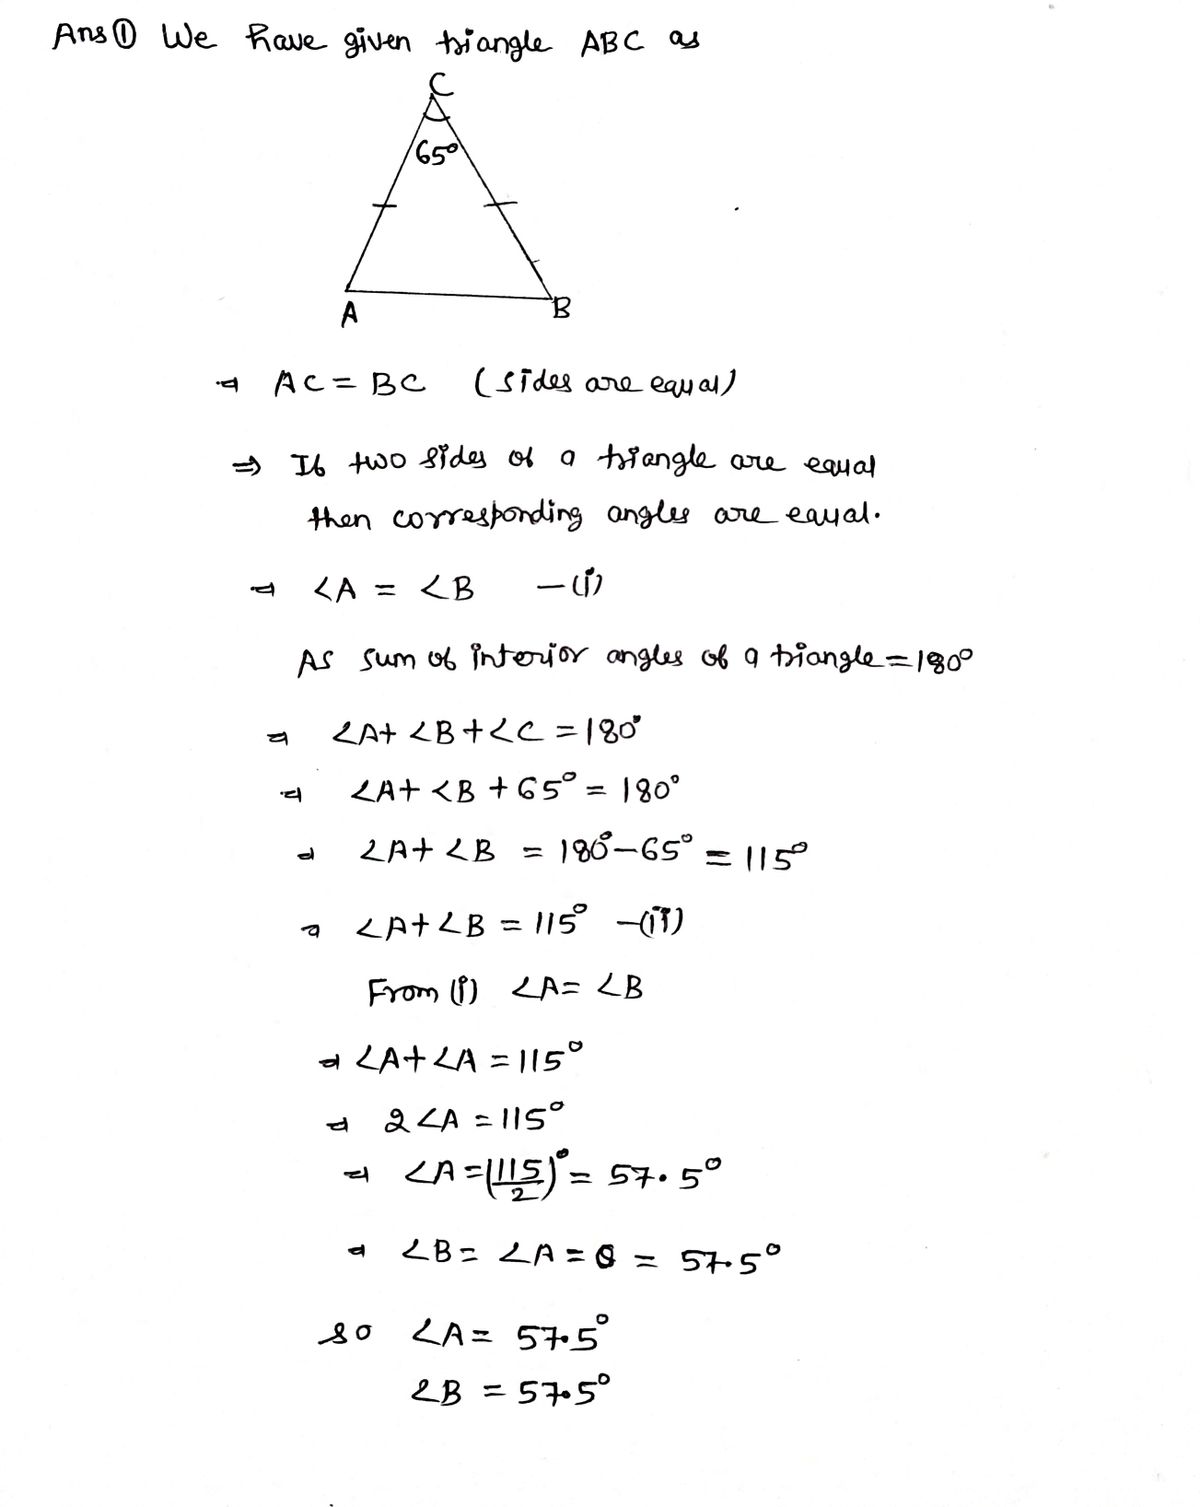 Ans ① We have given triangle ABC as
C
65°
A
B
⇒ AC = BC (sides are equal)
⇒ If two sides of a triangle are equal
then corresponding angles are equal.
⇒ ∠A = ∠B —(i)
As sum of interior angles of a triangle = 180°
⇒ ∠A + ∠B + ∠C = 180°
⇒ ∠A + ∠B + 65° = 180°
⇒ ∠A + ∠B = 180° – 65° = 115°
⇒ ∠A + ∠B = 115° —(ii)
From (i) ∠A = ∠B
⇒ ∠A + ∠A = 115°
⇒ 2∠A = 115°
⇒ ∠A = (115/2)° = 57.5°
⇒ ∠B = ∠A = = 57.5°
so ∠A = 57.5°
∠B = 57.5°